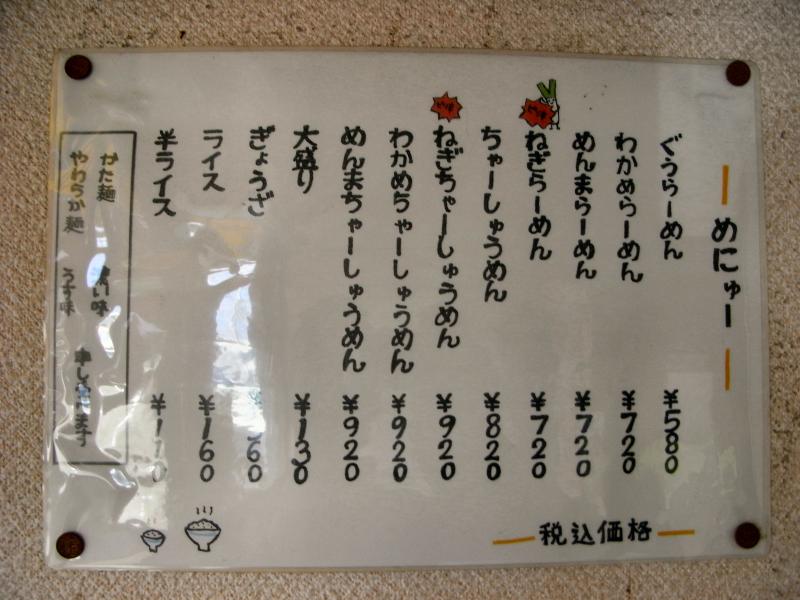 めにゅー
ぐうらーめん ¥580
わかめらーめん ¥720
めんまらーめん ¥720
ねぎらーめん ¥720
ちゃーしゅうめん ¥820
ねぎちゃーしゅうめん ¥920
わかめちゃーしゅうめん ¥920
めんまちゃーしゅうめん ¥920
大盛り ¥130
ぎょうざ
ライス ¥160
半ライス ¥110
かた麺 味
やわらか麺 うす味
税込価格